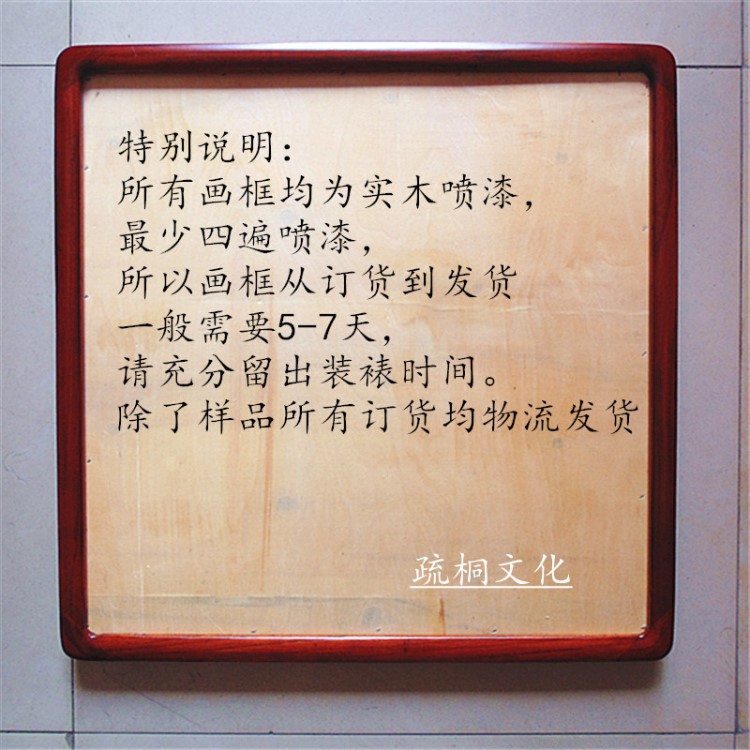 特别说明:
所有画框均为实木喷漆,
最少四遍喷漆,
所以画框从订货到发货
一般需要5-7天,
请充分留出装裱时间。
除了样品所有订货均物流发货
疏桐文化